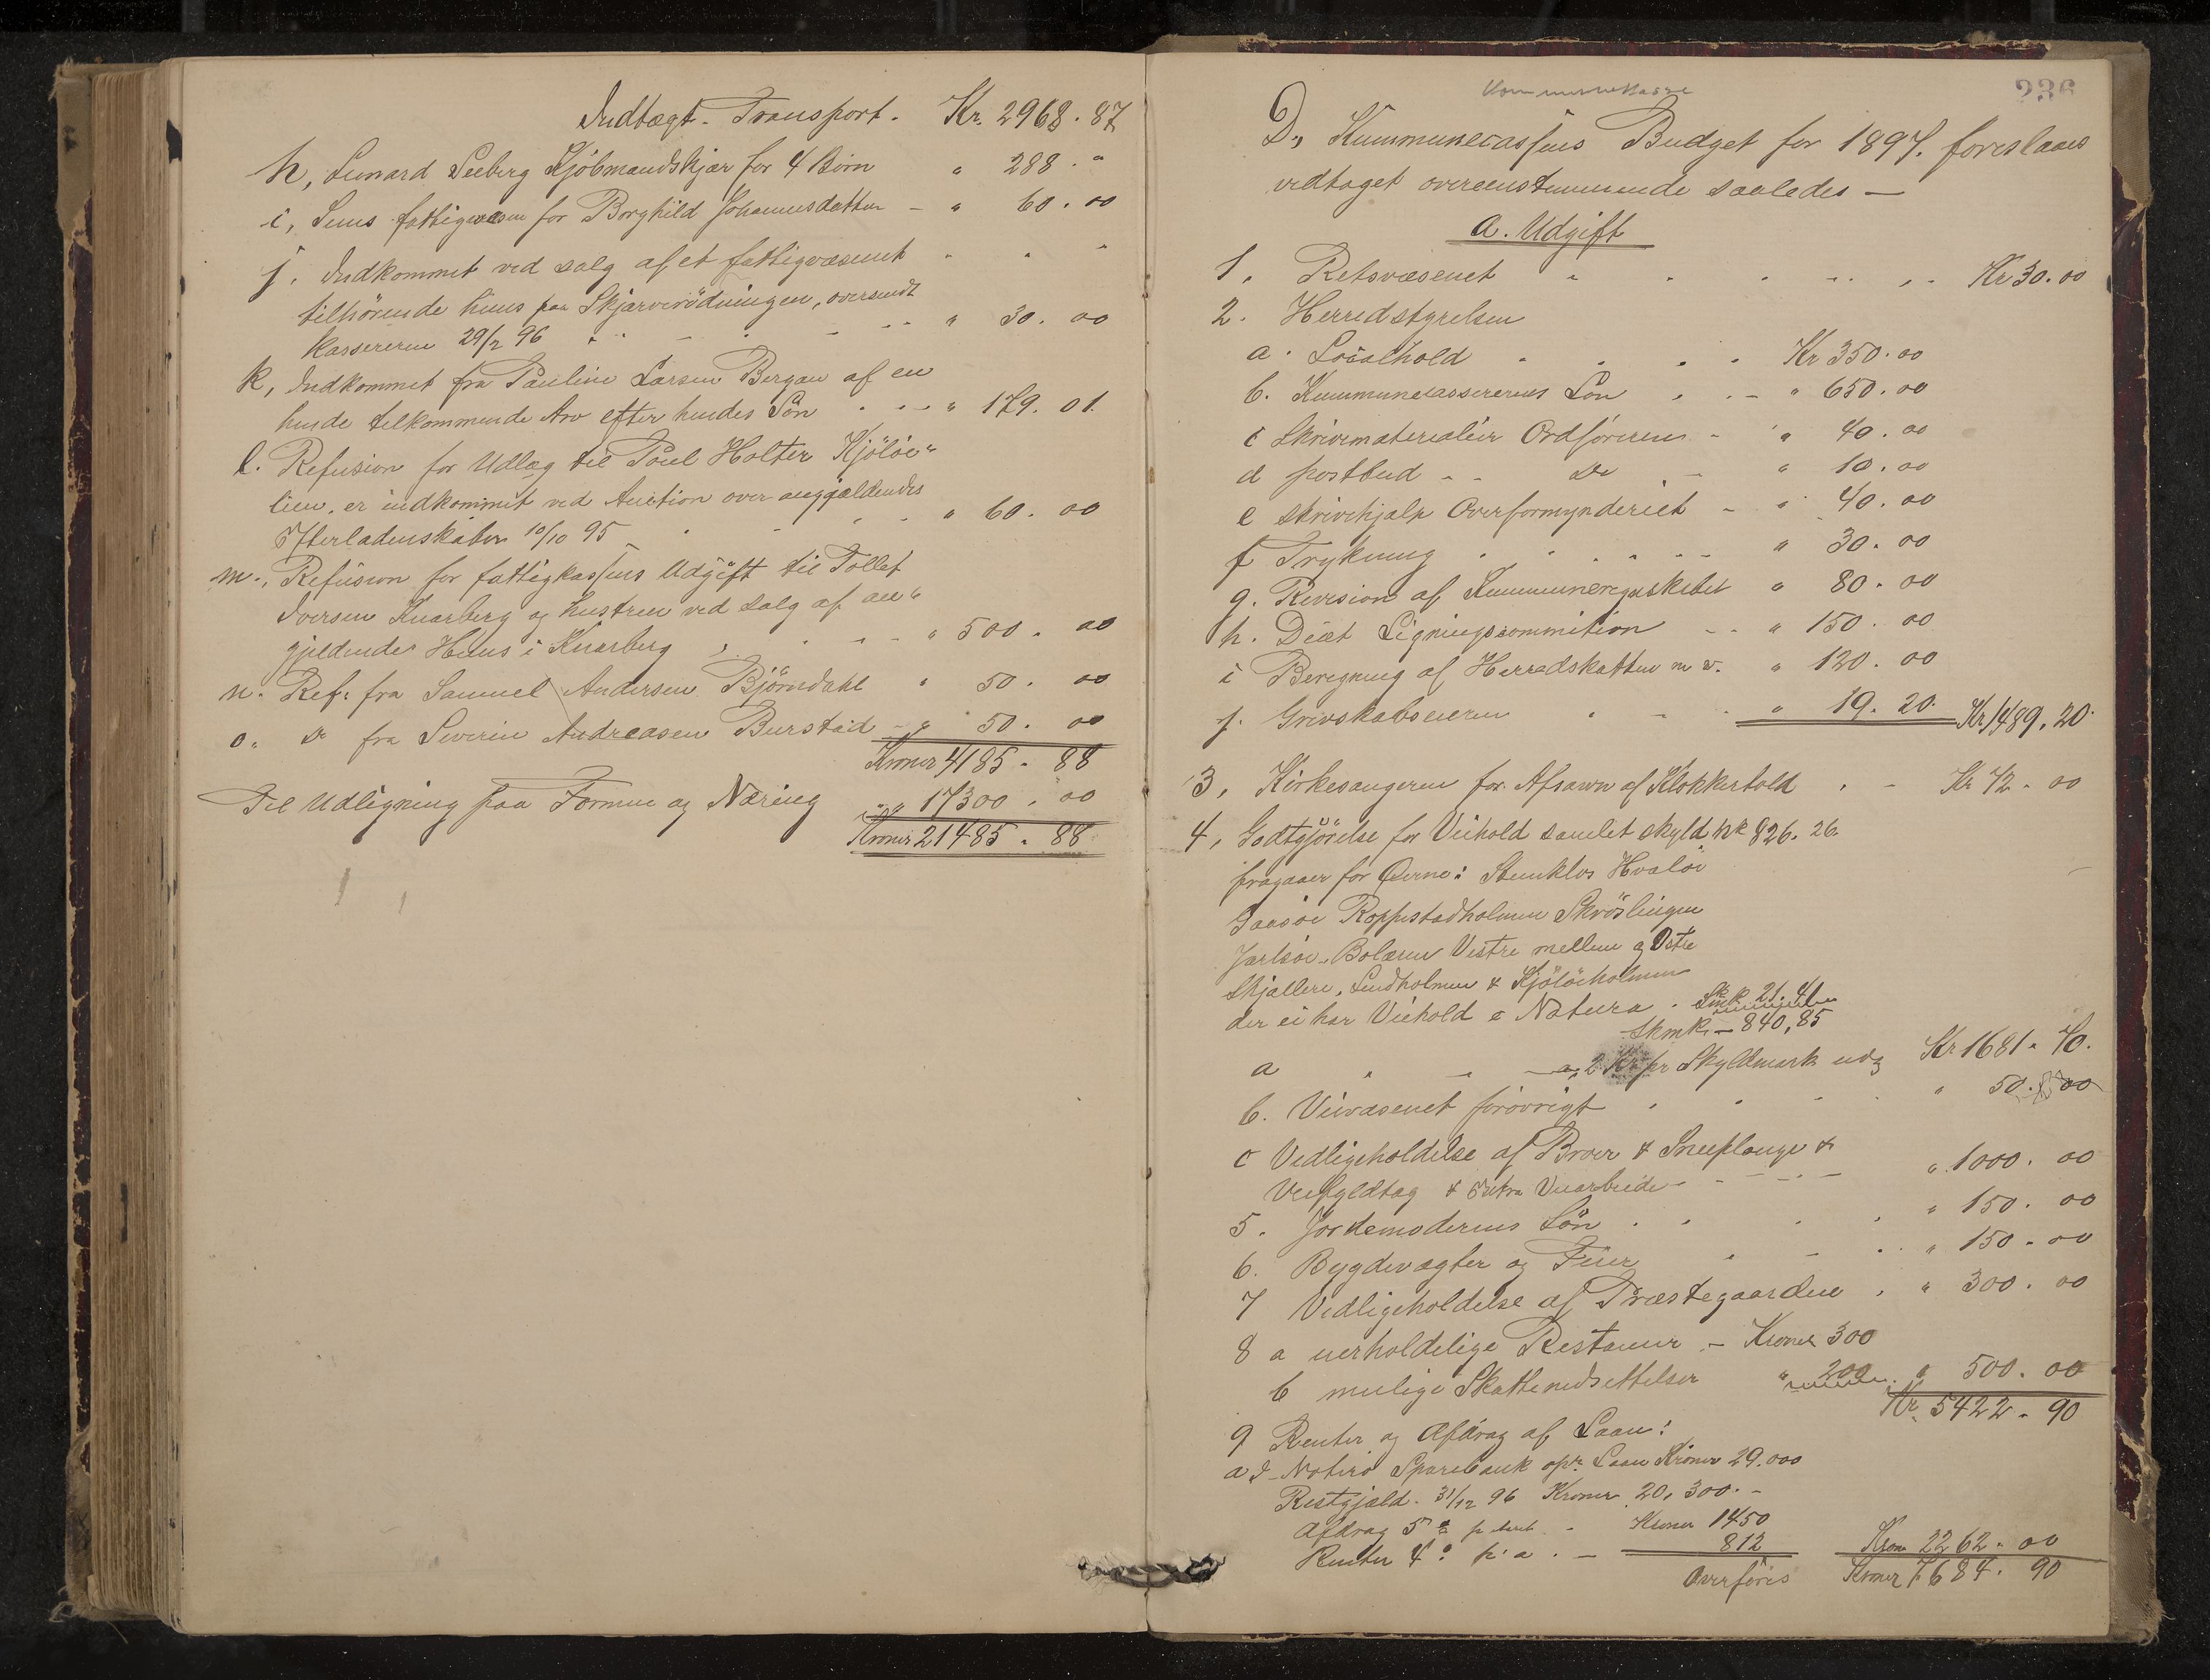 Indtægt. Transport. Kr. 2968. 87
h, Leonard Seeberg Kjøbmandskjær for 4 Børn " 288. "
i, Sems fattigvæsen for Borghild Johannesdatter - " 60. 00
j. Indkommet ved salg af et fattigvæsenet
tilhørende huus paa Skjærverødningen, oversendt
kassereren 29/2 96 " 30. 00
k, Indkommet fra Pauline Larsen Bergan af en
hende tilkommende Arv efter hendes Søn " 179. 01.
l. Refusion for Udlæg til Poul Holter Kjøløe"
lien, er indkommet ved Auction over angjældendes
Efterladenskaber 10/10 95 " 60. 00
m., Refusion for fattigkassens Udgift til Tollef
Iversen Knarberg og hustru ved salg af an"
gjeldendes Huus i Knarberg " 500. 00
n. Ref. fra Samuel Andersen Bjørndahl " 50. 00
o. do fra Severin Andreasen Burstad - " 50. 00
Kroner 4185. 88
Til Udligning paa Formue og Næring " 17300. 00
Kroner 21485. 88
236
Kommunekasse
D, Kummunecassens Budget for 1897. foreslaaes
vedtaget overeenstemmende saaledes —
a. Udgift
1. Retsvæsenet Kr 30. 00
2. Herredstyrelsen
a. Localhold Kr 350. 00
b. Kummunecassererens Løn " 650. 00
c Skrivematerialier Ordføreren - " 40. 00
d postbud - - do - " 10. 00
e skrivehjælp Overformynderiet - " 40. 00
f Trykning " 30. 00
g. Revision af Kummuneregnskabet " 80. 00
h. Diæt Ligningscommition - - " 150. 00
i Beregning af Herredskatten m v. " 120. 00
j. Grevskabseieren " 19. 20. Kr 1489. 20.
3, Kirkesangeren for Afsavn af Klokkertold Kr 72. 00
4, Godtgjørelse for Veihold samlet skyld Mk 826. 26.
fragaaer for Øerne: Stenklos Hvaløe
Gaasøe Roppestadholmen Skrøslingen
Jarlsøe, Bolæren Vestre mellem og Østre
Skjællere, Lindholmen & Kjøløeholmen
der ei har Veihold e Natura. 21. 41
Skmk - 840, 85
a 2 Kr pr Skyldmark udg Kr 1681. 70.
b. Veivæsenet forøvrigt " 50. 00
c Vedligeholdelse af Broer & Sneeplouge &
Veifyldtag & Extra Veiarbeide - " 1000. 00
5. Jordemoderens Løn " 150. 00
6. Bygdevægter og Feier " 150. 00
7 Vedligeholdelse af Præstegaarden " 300. 00
8 a uerholdelige Restancer - Kroner 300
b mulige Skattenedsettelser " 200 " 500. 00
Kr. 5422. 90
9 Renter og Afdrag af Laan:
a I Nøterø Sparebank opr. Laan Kroner 29.000
Restgjæld. 31/12 96 Kroner 20,300. -
Afdrag 5 % pr Aaret. - Kroner 1450
Renter 4 % p. a. - 812 Kron 2262. 00
Overføres Kroner 7684. 90